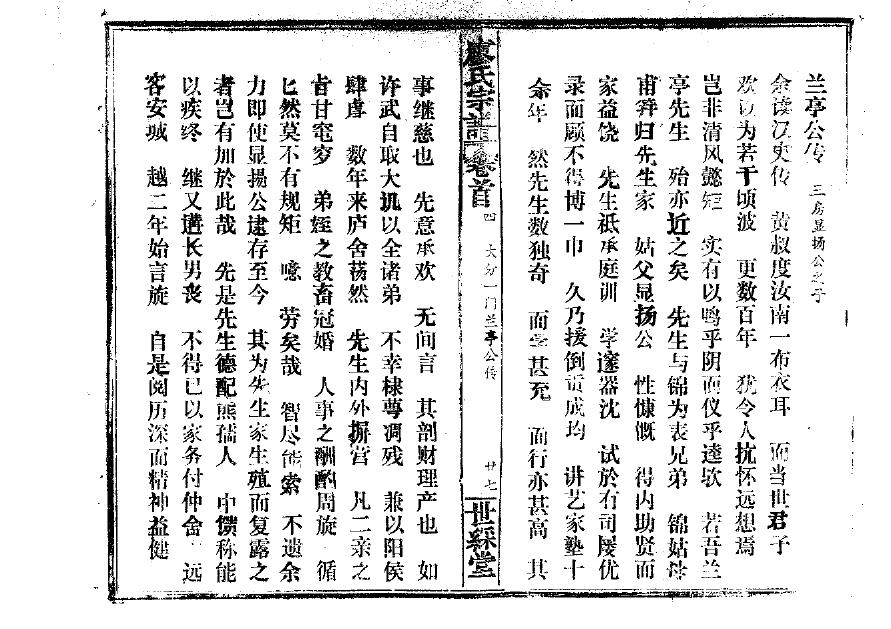 兰亭公传 三房显扬公之子
余读汉史传 黄叔度汝南一布衣耳 而当世君子
欢访为若干顷波 更数百年 犹令人抗怀远想焉
岂非清风懿矩 实有以鸣乎阴而仪乎逵欤 若吾兰
亭先生 殆亦近之矣 先生与锦为表兄弟 锦姑母
甫笄归先生家 姑父显扬公 性慷慨 得内助贤而
家益饶 先生祗承庭训 学邃器沈 试於有司屡优
录而顾不得博一巾 久乃援例贡成均 讲艺家塾十
余年 然先生数独奇 而学甚充 而行亦甚高 其
廖氏宗谱 卷首 四 大分一门兰亭公传 廿七 世綵堂
事继慈也 先意承欢 无间言 其剖财理产也 如
许武自取大抛以全诸弟 不幸棣萼凋残 兼以阳侯
肆虐 数年来庐舍荡然 先生内外摒当 凡二亲之
旨甘窀穸 弟姪之教畜冠婚 人事之酬酢周旋 循
匕然莫不有规矩 噫 劳矣哉 智尽能索 不遗余
力即使显扬公逮存至今 其为先生家生殖而复露之
者岂有加於此哉 先是先生德配熊孺人 中馈称能
以疾终 继又遘长男丧 不得已以家务付仲舍 远
客安城 越二年始言旋 自是阅历深而精神益健